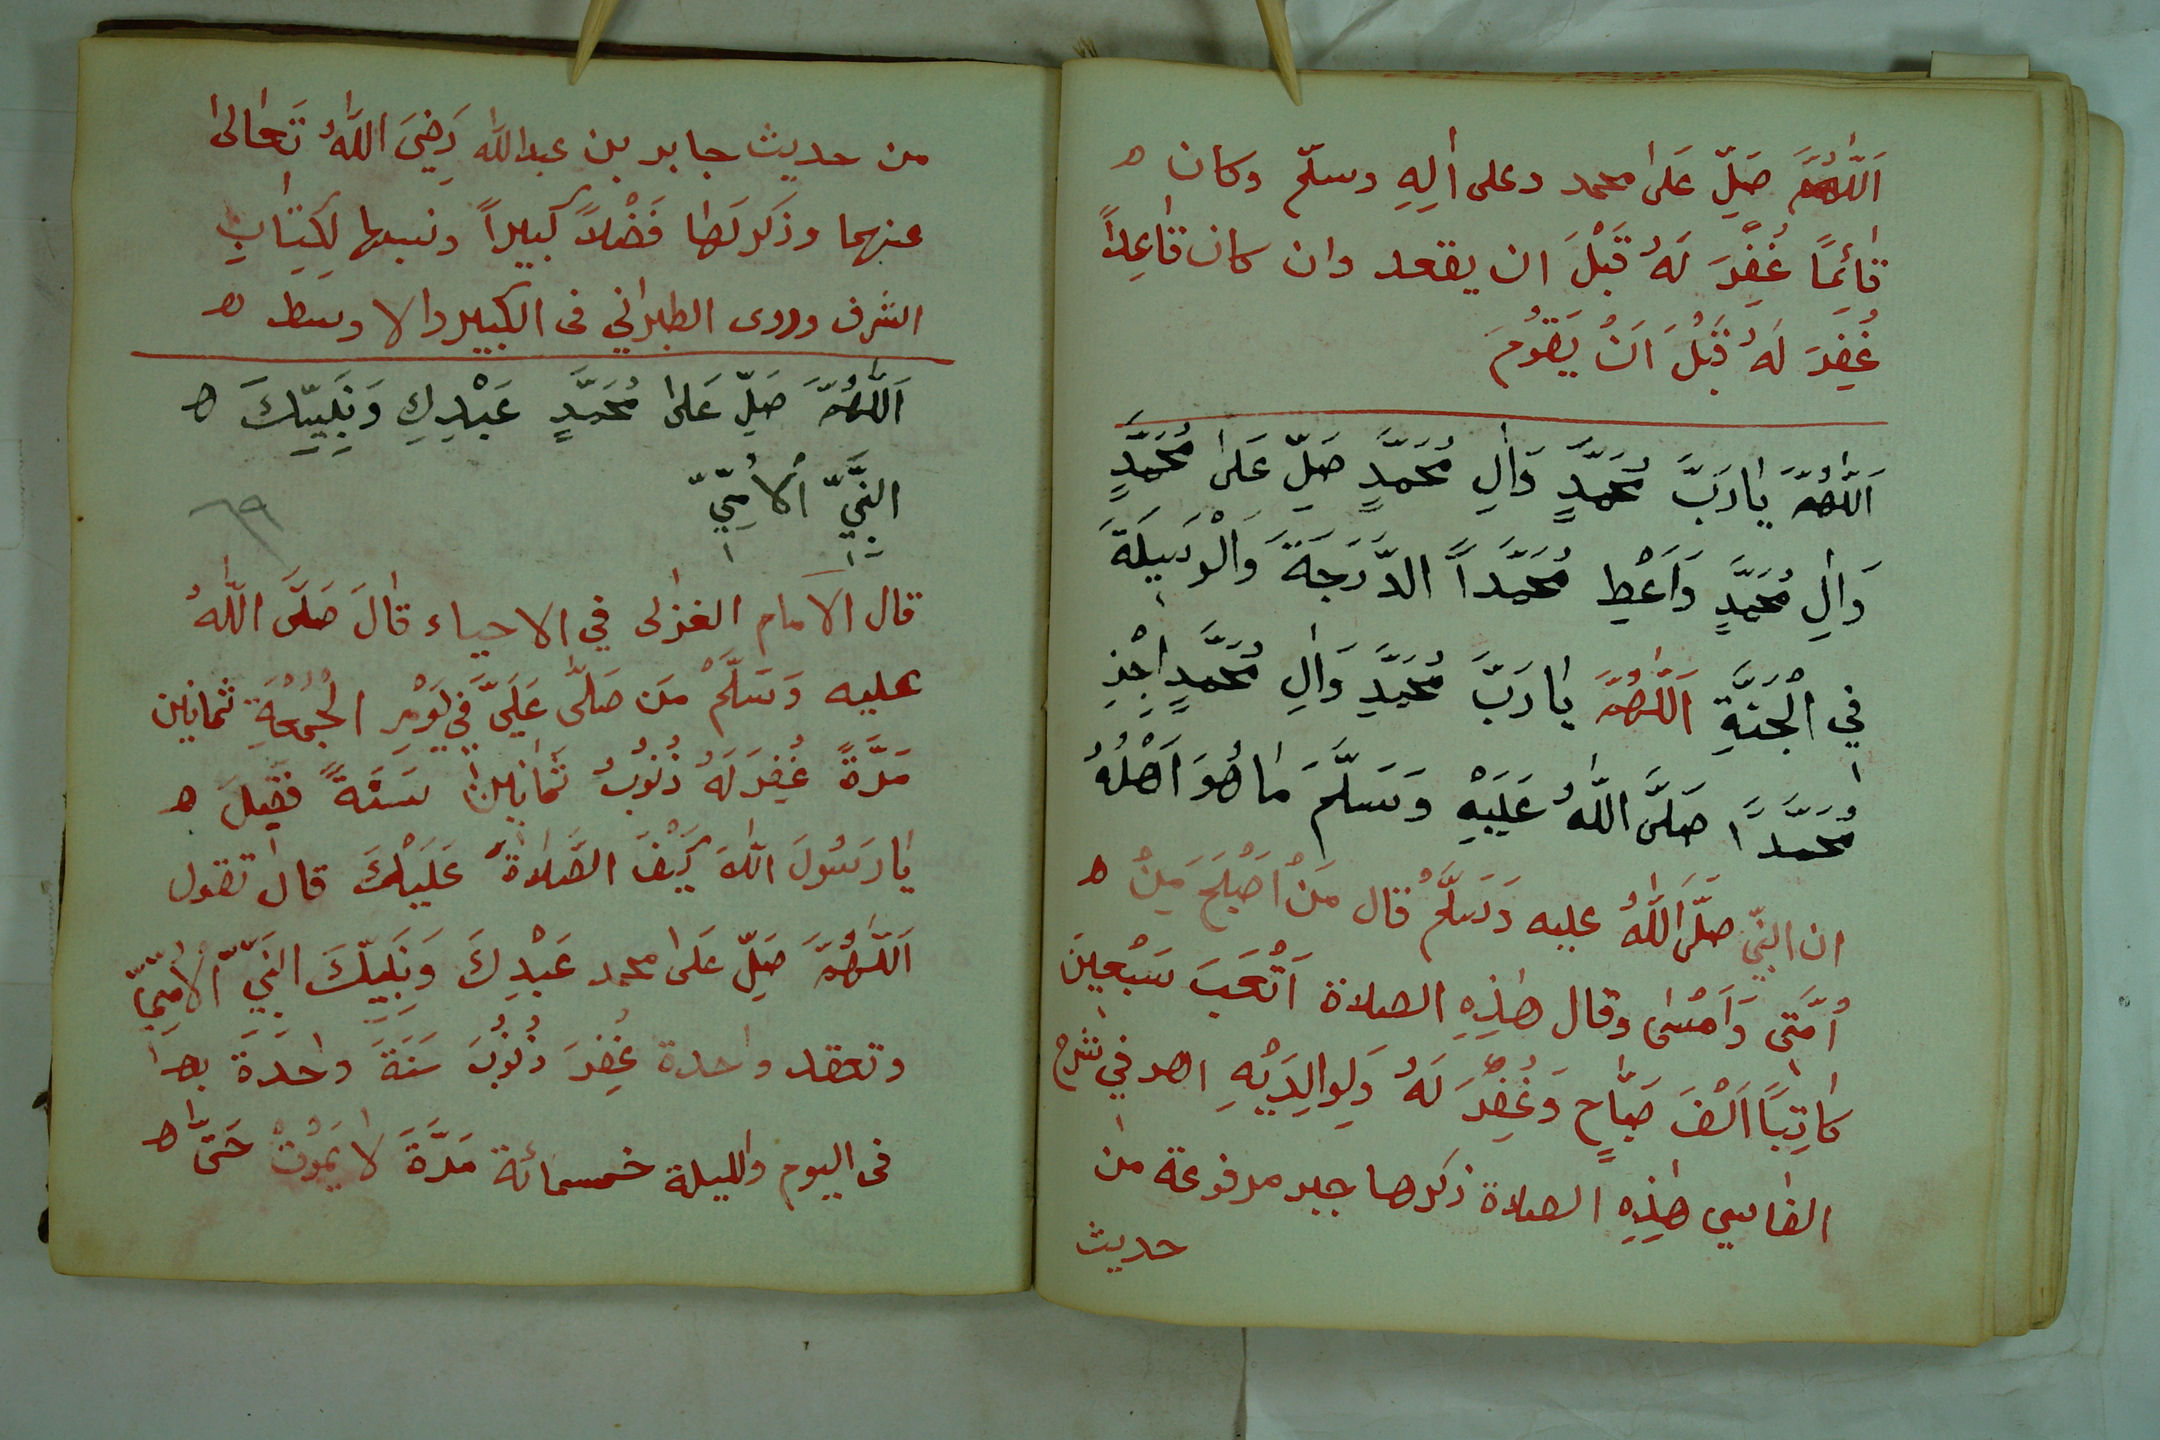 اَللّٰهُمَّ صَلِّ عَلىٰ محمد وعلى اٰلِهِ وسلّم وكان ه
قٰائِمًا غُفِرَ لَهُ قَبْلَ ان يقعد وان كان قٰاعِداً
غُفِرَ لَهُ قَبْلَ اَنْ يَقوُمَ
اَللّٰهُمَّ يٰارَبَّ مُحَمَّدٍ وَاٰلِ مُحَمَّدٍ صَلِّ عَلىٰ مُحَمَّدٍ
وَاٰلِ مُحَمَّدٍ وَاَعْطِ مُحَمَّداً الدَّرَجَةَ وَالْوَسيلَةَ
فِي الْجَنَّةِ اَللّٰهُمَّ يٰارَبَّ مُحَمَّدٍ وَاٰلِ مُحَمَّدٍ اِجْزِ
مُحَمَّداً صَلَّى اللّٰهُ عَلَيْهِ وَسَلَّمَ مٰا هُوَ اَهْلُهُ
ان النبيّ صلَّى اللّٰهُ عليه وَسَلَّمُ قال مَنْ اَصْبَحَ مِنْ ه
اُمَّتى وَاَمْسٰى وقال هٰذِهِ الصلاة اَتْعَبَ سَبْعينَ
كٰاتِبًا اَلْفَ صَبٰاحٍ وَغُفِرَ لَهُ وَلِوالِدَيْهِ اهـ في شرح
الفاسي هٰذِهِ الصلاة ذكرها جبر مرفوعة من
حديث
من حديث جابر بن عبدالله رَضِيَ اللّٰهُ تَعٰالىٰ
عنهما وذَكَرَ لَهٰا فَضْلاً كَبيراً ونسبها لِكِتٰابِ
الشرف وروى الطبراني فى الكبير والاوسط ه
اَللّٰهُمَّ صَلِّ عَلىٰ مُحَمَّدٍ عَبْدِكِ وَنَبِيِّكَ ه
النَّبِيِّ اْلاُمِّيِّ
٦٩
قال الامام الغزلى في الاحياء قٰالَ صَلَّى اللّٰهُ
عليه وَسَلَّمْ مَن صَلّٰى عَلَيَّ في يَوْمِ الْجُمْعَةِ ثمانين
مَرَّةً غُفِرَ لَهُ ذُنُوبُ ثَمٰانينَ سَنَةً فقيلَ ه
يٰارَسُولَ اللّٰهَ كَيْفَ الصَّلٰاةُ عَلَيْكَ قال تقول
اَللّٰهُمَّ صَلِّ عَلىٰ محمد عَبْدِكَ وَنَبِيِّكَ النَّبِيِّ الْاُمِّيِّ
وتعقد واحدة غُفِرَ ذُنُوبَ سَنَةَ وٰاحِدَةَ بهٰا
فى اليوم والليلة خمسمائة مَرَّةَ لٰا يَمُوْتْ حَتّٰى ه